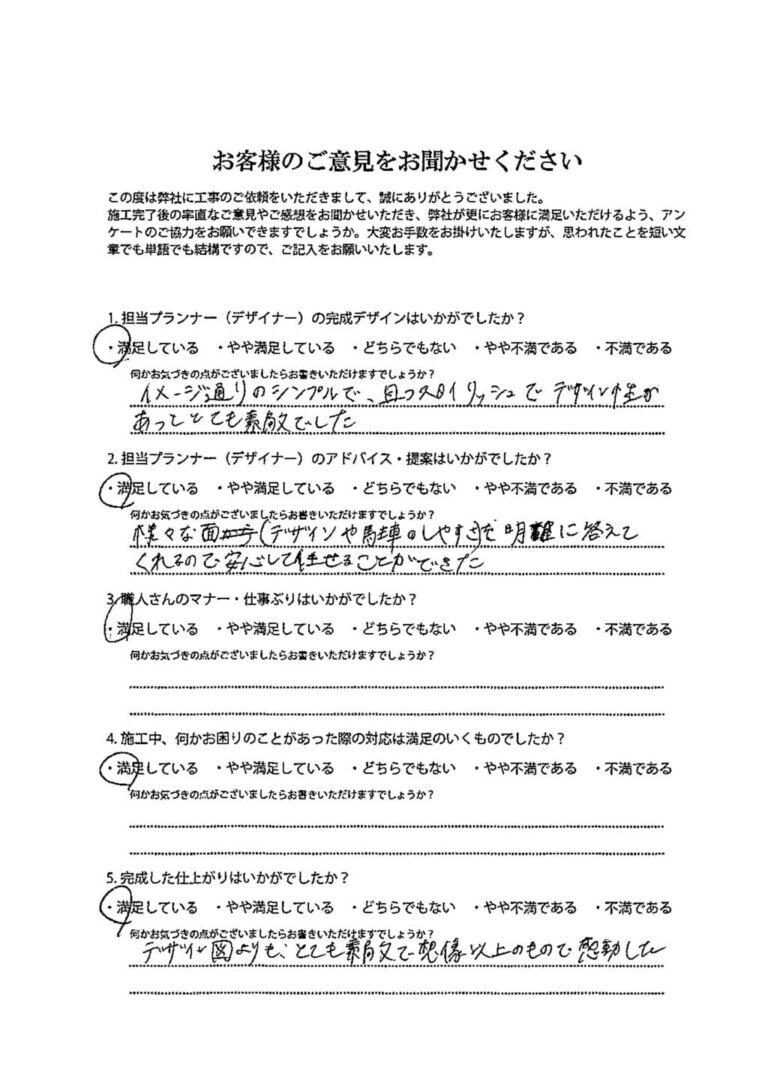 お客様のご意見をお聞かせください
この度は弊社に工事のご依頼をいただきまして、誠にありがとうございました。
施工完了後の率直なご意見やご感想をお聞かせいただき、弊社が更にお客様に満足いただけるよう、アン
ケートのご協力をお願いできますでしょうか。大変お手数をお掛けいたしますが、思われたことを短い文
章でも単語でも結構ですので、ご記入をお願いいたします。
1. 担当プランナー（デザイナー）の完成デザインはいかがでしたか？
・満足している ・やや満足している ・どちらでもない ・やや不満である ・不満である
何かお気づきの点がございましたらお書きいただけますでしょうか？
イメージ通りのシンプルで、且つスタイリッシュでデザイン性が
あってとても素敵でした
2. 担当プランナー（デザイナー）のアドバイス・提案はいかがでしたか？
・満足している ・やや満足している ・どちらでもない ・やや不満である ・不満である
何かお気づきの点がございましたらお書きいただけますでしょうか？
様々な面(デザインや駐車のしやすさ)を明確に答えて
くれるので安心して任せることができた
3. 職人さんのマナー・仕事ぶりはいかがでしたか？
・満足している ・やや満足している ・どちらでもない ・やや不満である ・不満である
何かお気づきの点がございましたらお書きいただけますでしょうか？
4. 施工中、何かお困りのことがあった際の対応は満足のいくものでしたか？
・満足している ・やや満足している ・どちらでもない ・やや不満である ・不満である
何かお気づきの点がございましたらお書きいただけますでしょうか？
5. 完成した仕上がりはいかがでしたか？
・満足している ・やや満足している ・どちらでもない ・やや不満である ・不満である
何かお気づきの点がございましたらお書きいただけますでしょうか？
デザイン図よりも、とても素敵で想像以上のもので感動した